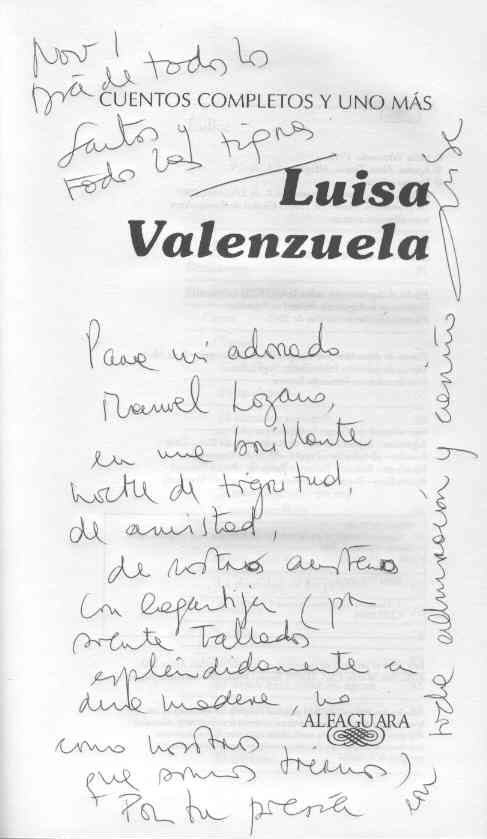 Nov 1
Día de todos los
CUENTOS COMPLETOS Y UNO MÁS
Santos y
todos los tigres
Luisa
Valenzuela
Para mi adorado
Manuel Lozano,
en una brillante
noche de tigritud,
de amistad,
de rostros austeros
con lagartija (por
suerte tallados
espléndidamente en
dura madera, no
ALFAGUARA
como nosotros
que somos tiernos)
Por tu poesía
con toda admiración y cariño
Luisa